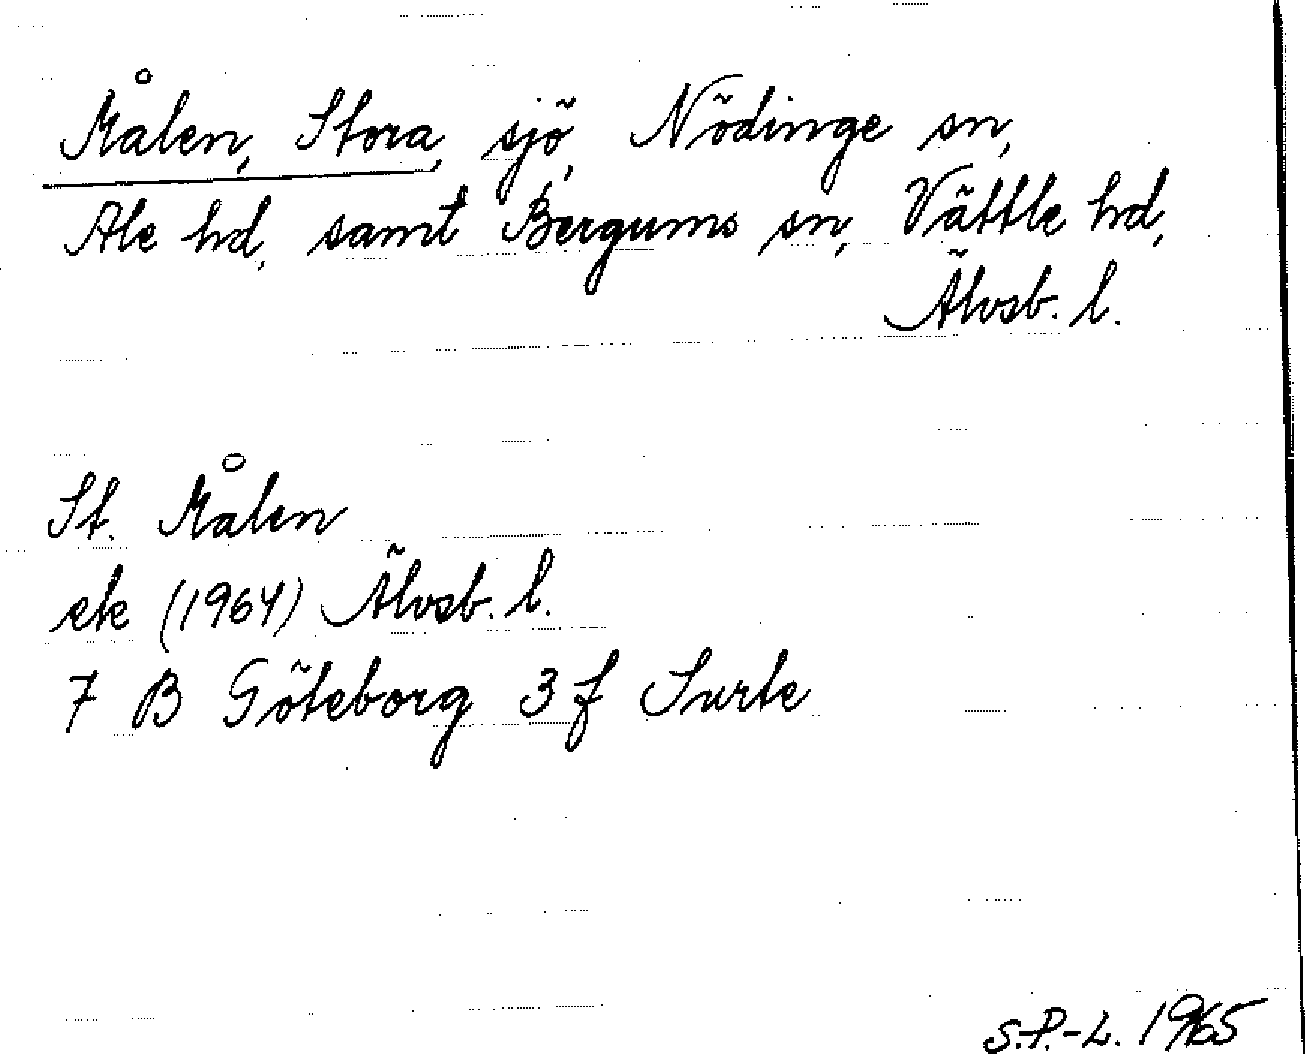 Målen, Stora, sjö, Nödinge sn,
Ale hd, samt Bergums sn, Vättle hd,
Älvsb. l.
St. Målen
ek (1964) Älvsb. l.
7 B Göteborg 3 f Surte
S.P.-L. 1965